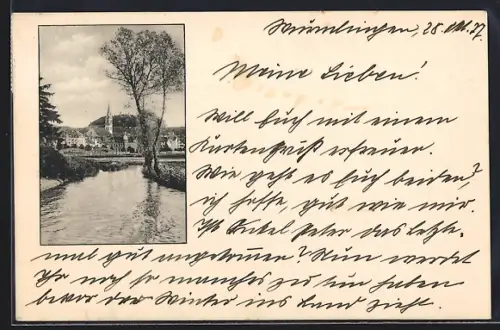 Wurmlingen, 28. Okt. 27.
Meine Lieben!
Will Euch mit einem
Kartengruß erfreuen.
Wie geht es Euch beiden?,
ich hoffe, gut wie mir.
Ist Onkel Peter das letzte-
mal gut angekommen? Nun werdet
Ihr noch so manches zu tun haben
bevor der Winter ins Land zieht.